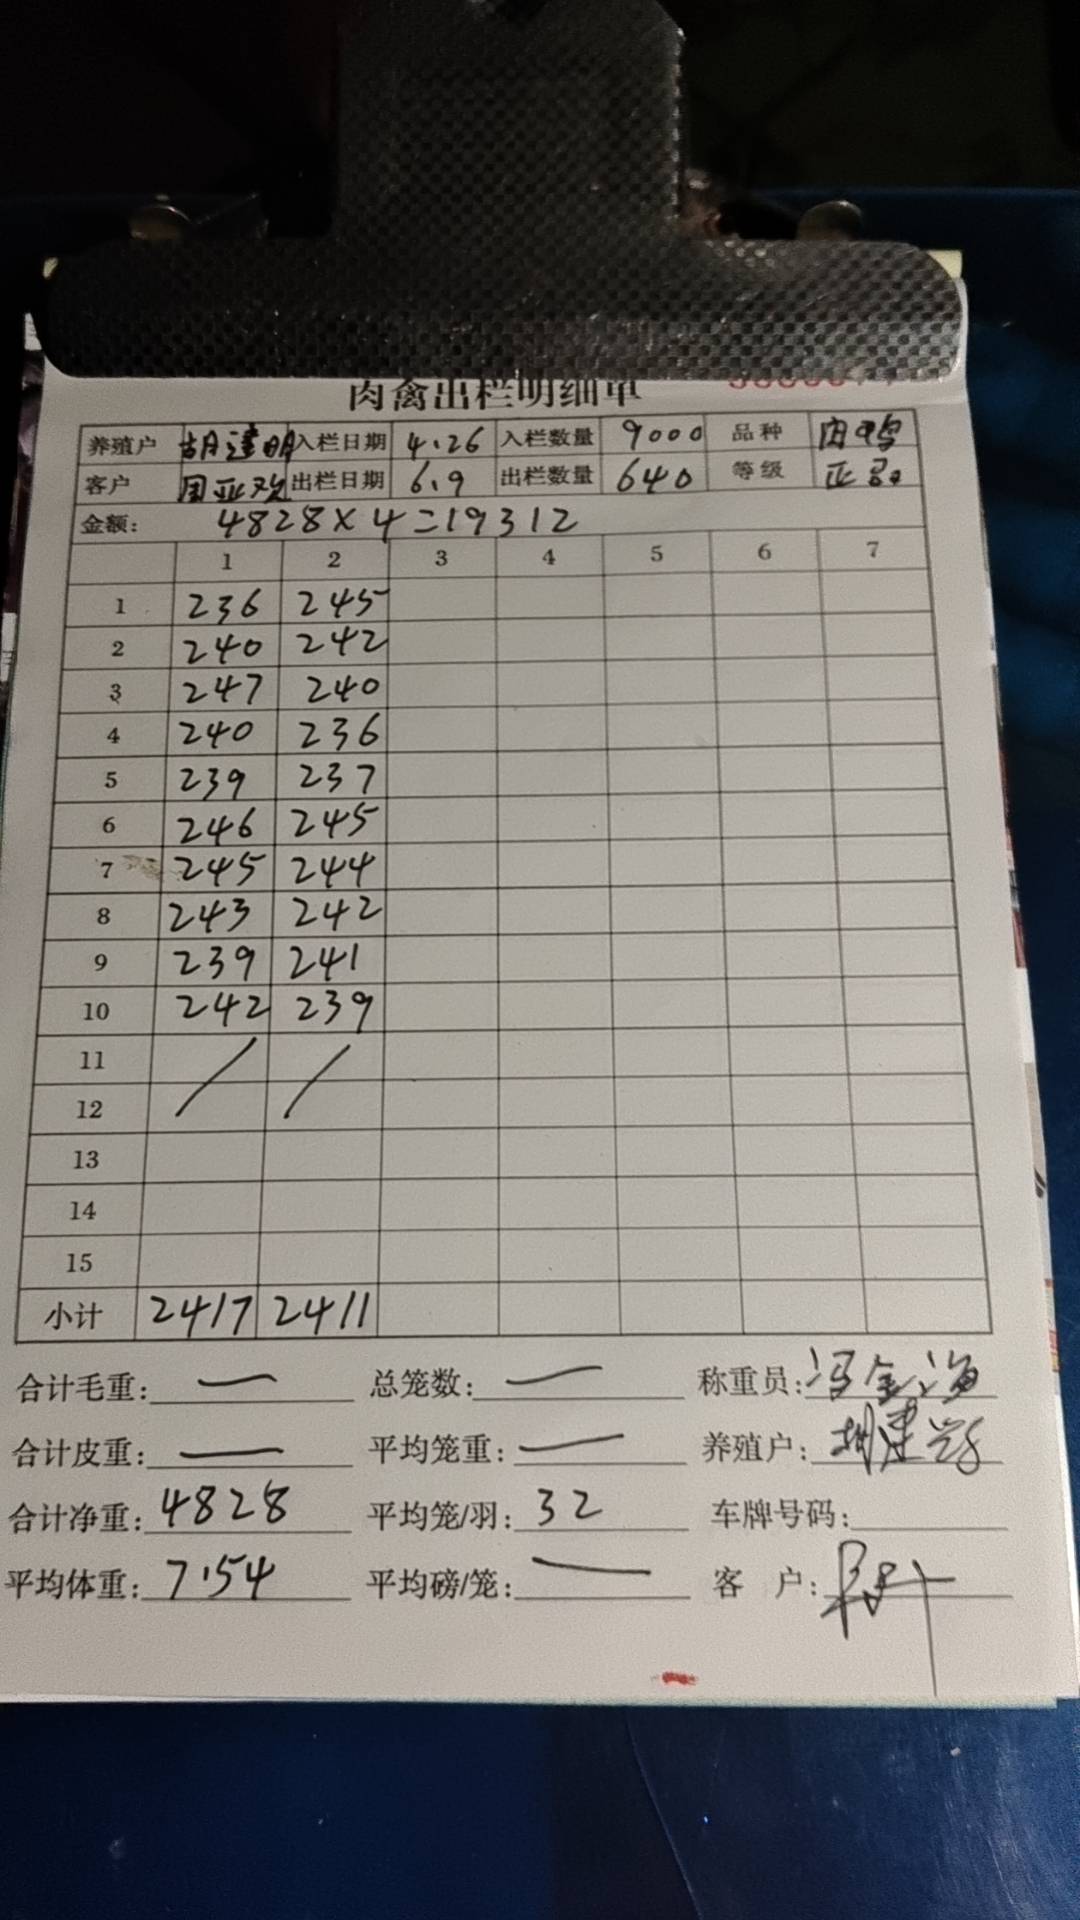 肉禽出栏明细单
养殖户 胡建明 入栏日期 4.26 入栏数量 9000 品种 肉鸡
客户 周亚欢 出栏日期 6.9 出栏数量 640 等级
金额: 4828×4=19312
1 2 3 4 5 6 7
1 236 245
2 240 242
3 247 240
4 240 236
5 239 237
6 246 245
7 245 244
8 243 242
9 239 241
10 242 239
11
12
13
14
15
小计 2417 2411
合计毛重: — 总笼数: — 称重员: 冯金海
合计皮重: — 平均笼重: — 养殖户:
合计净重: 4828 平均笼/羽: 32 车牌号码:
平均体重: 7.54 平均磅/笼: — 客 户: